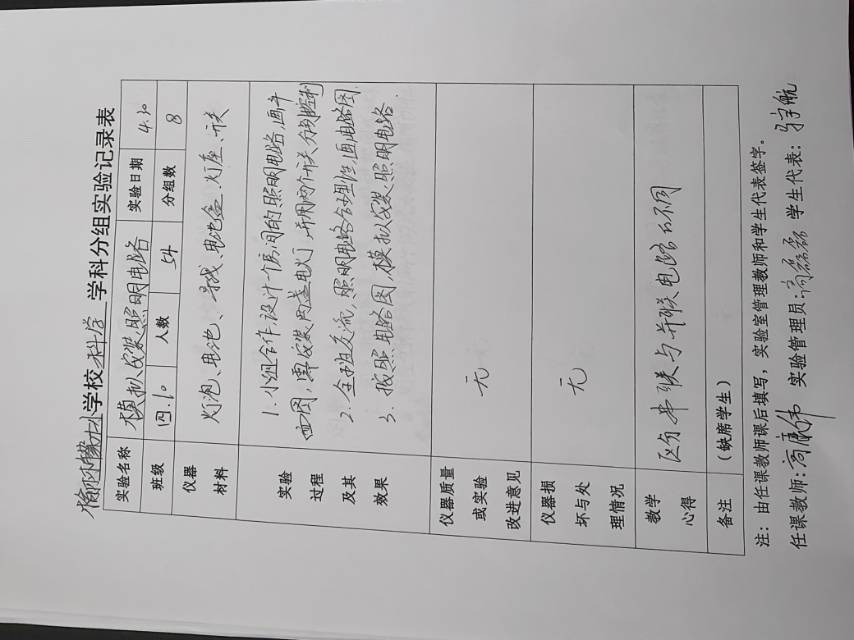 学校 科学 学科分组实验记录表
实验名称 模拟安装照明电路 实验日期 4.10
班级 四.10 人数 54 分组数 8
仪器材料 灯泡、电池、导线、电池盒、灯座、开关
实验过程及其效果
1. 小组合作,设计一个房间的照明电路,画平
面图,需安装两盏电灯,并用两个开关分别控制
2. 全班交流,照明电路合理性,画电路图.
3. 按照电路图,模拟安装照明电路.
仪器质量或实验改进意见 无
仪器损坏与处理情况 无
教学心得 区分串联与并联电路的不同
备注 (缺席学生)
注:由任课教师课后填写,实验室管理教师和学生代表签字。
任课教师: 实验管理员: 学生代表: